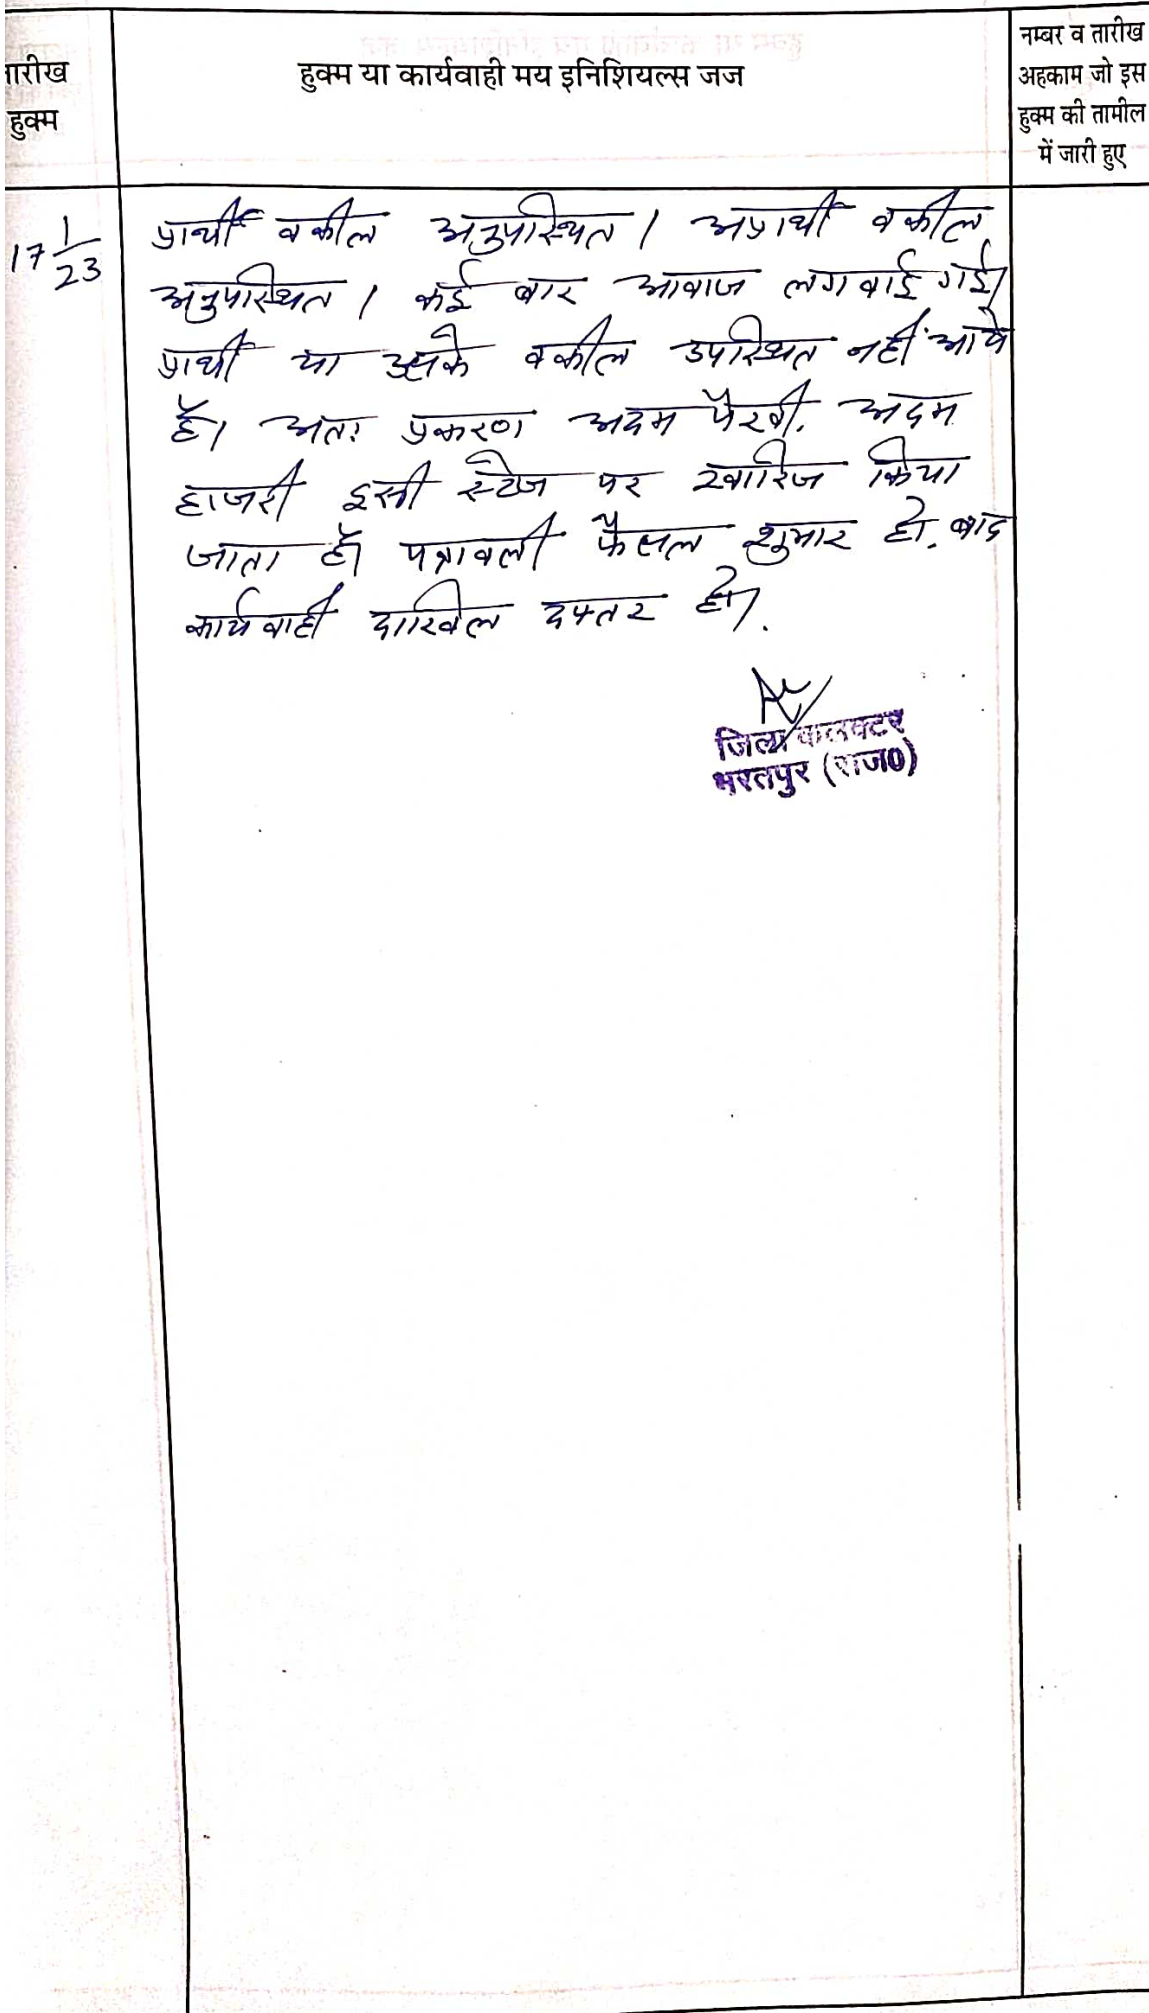 तारीख
हुक्म
हुक्म या कार्यवाही मय इनिशियल्स जज
नम्बर व तारीख
अहकाम जो इस
हुक्म की तामील
में जारी हुए
17 1/23
प्रार्थी वकील अनुपस्थित। अप्रार्थी वकील
अनुपस्थित। कई बार आवाज लगवाई गई।
प्रार्थी या उसके वकील उपस्थित नहीं आये
है। अतः प्रकरण अदम पैरवी, अदम
हाजरी इसी स्टेज पर खारिज किया
जाता है। पत्रावली फैसल शुमार हो, बाद
कार्यवाही दाखिल दफ्तर हो।
जिला कलक्टर
भरतपुर (राज0)